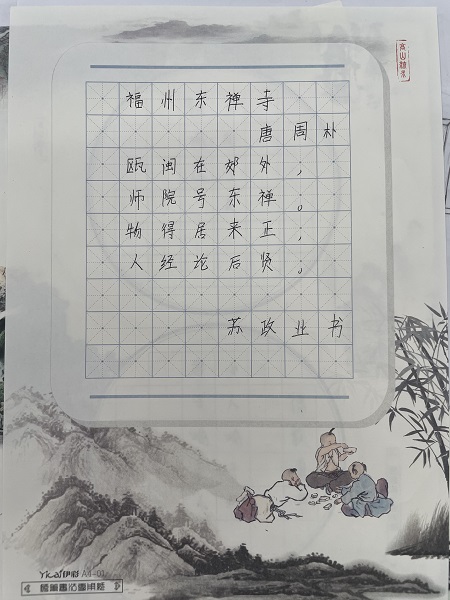 福州东禅寺
唐周朴
瓯闽在郊外，
师院号东禅。
物得居来正，
人经论后贤。
苏政业书
YiCAi伊彩 A4-01